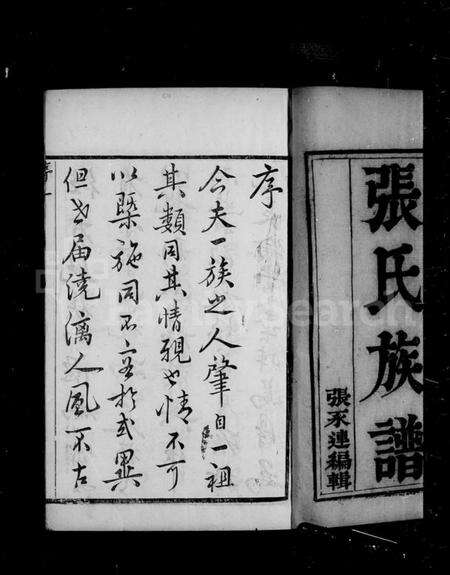 張氏族譜
張永連編輯
序
今夫一族之人肇自一祖
其類同其情親也情不可
以槩施同不容於或異
但世届澆漓人風不古
序一